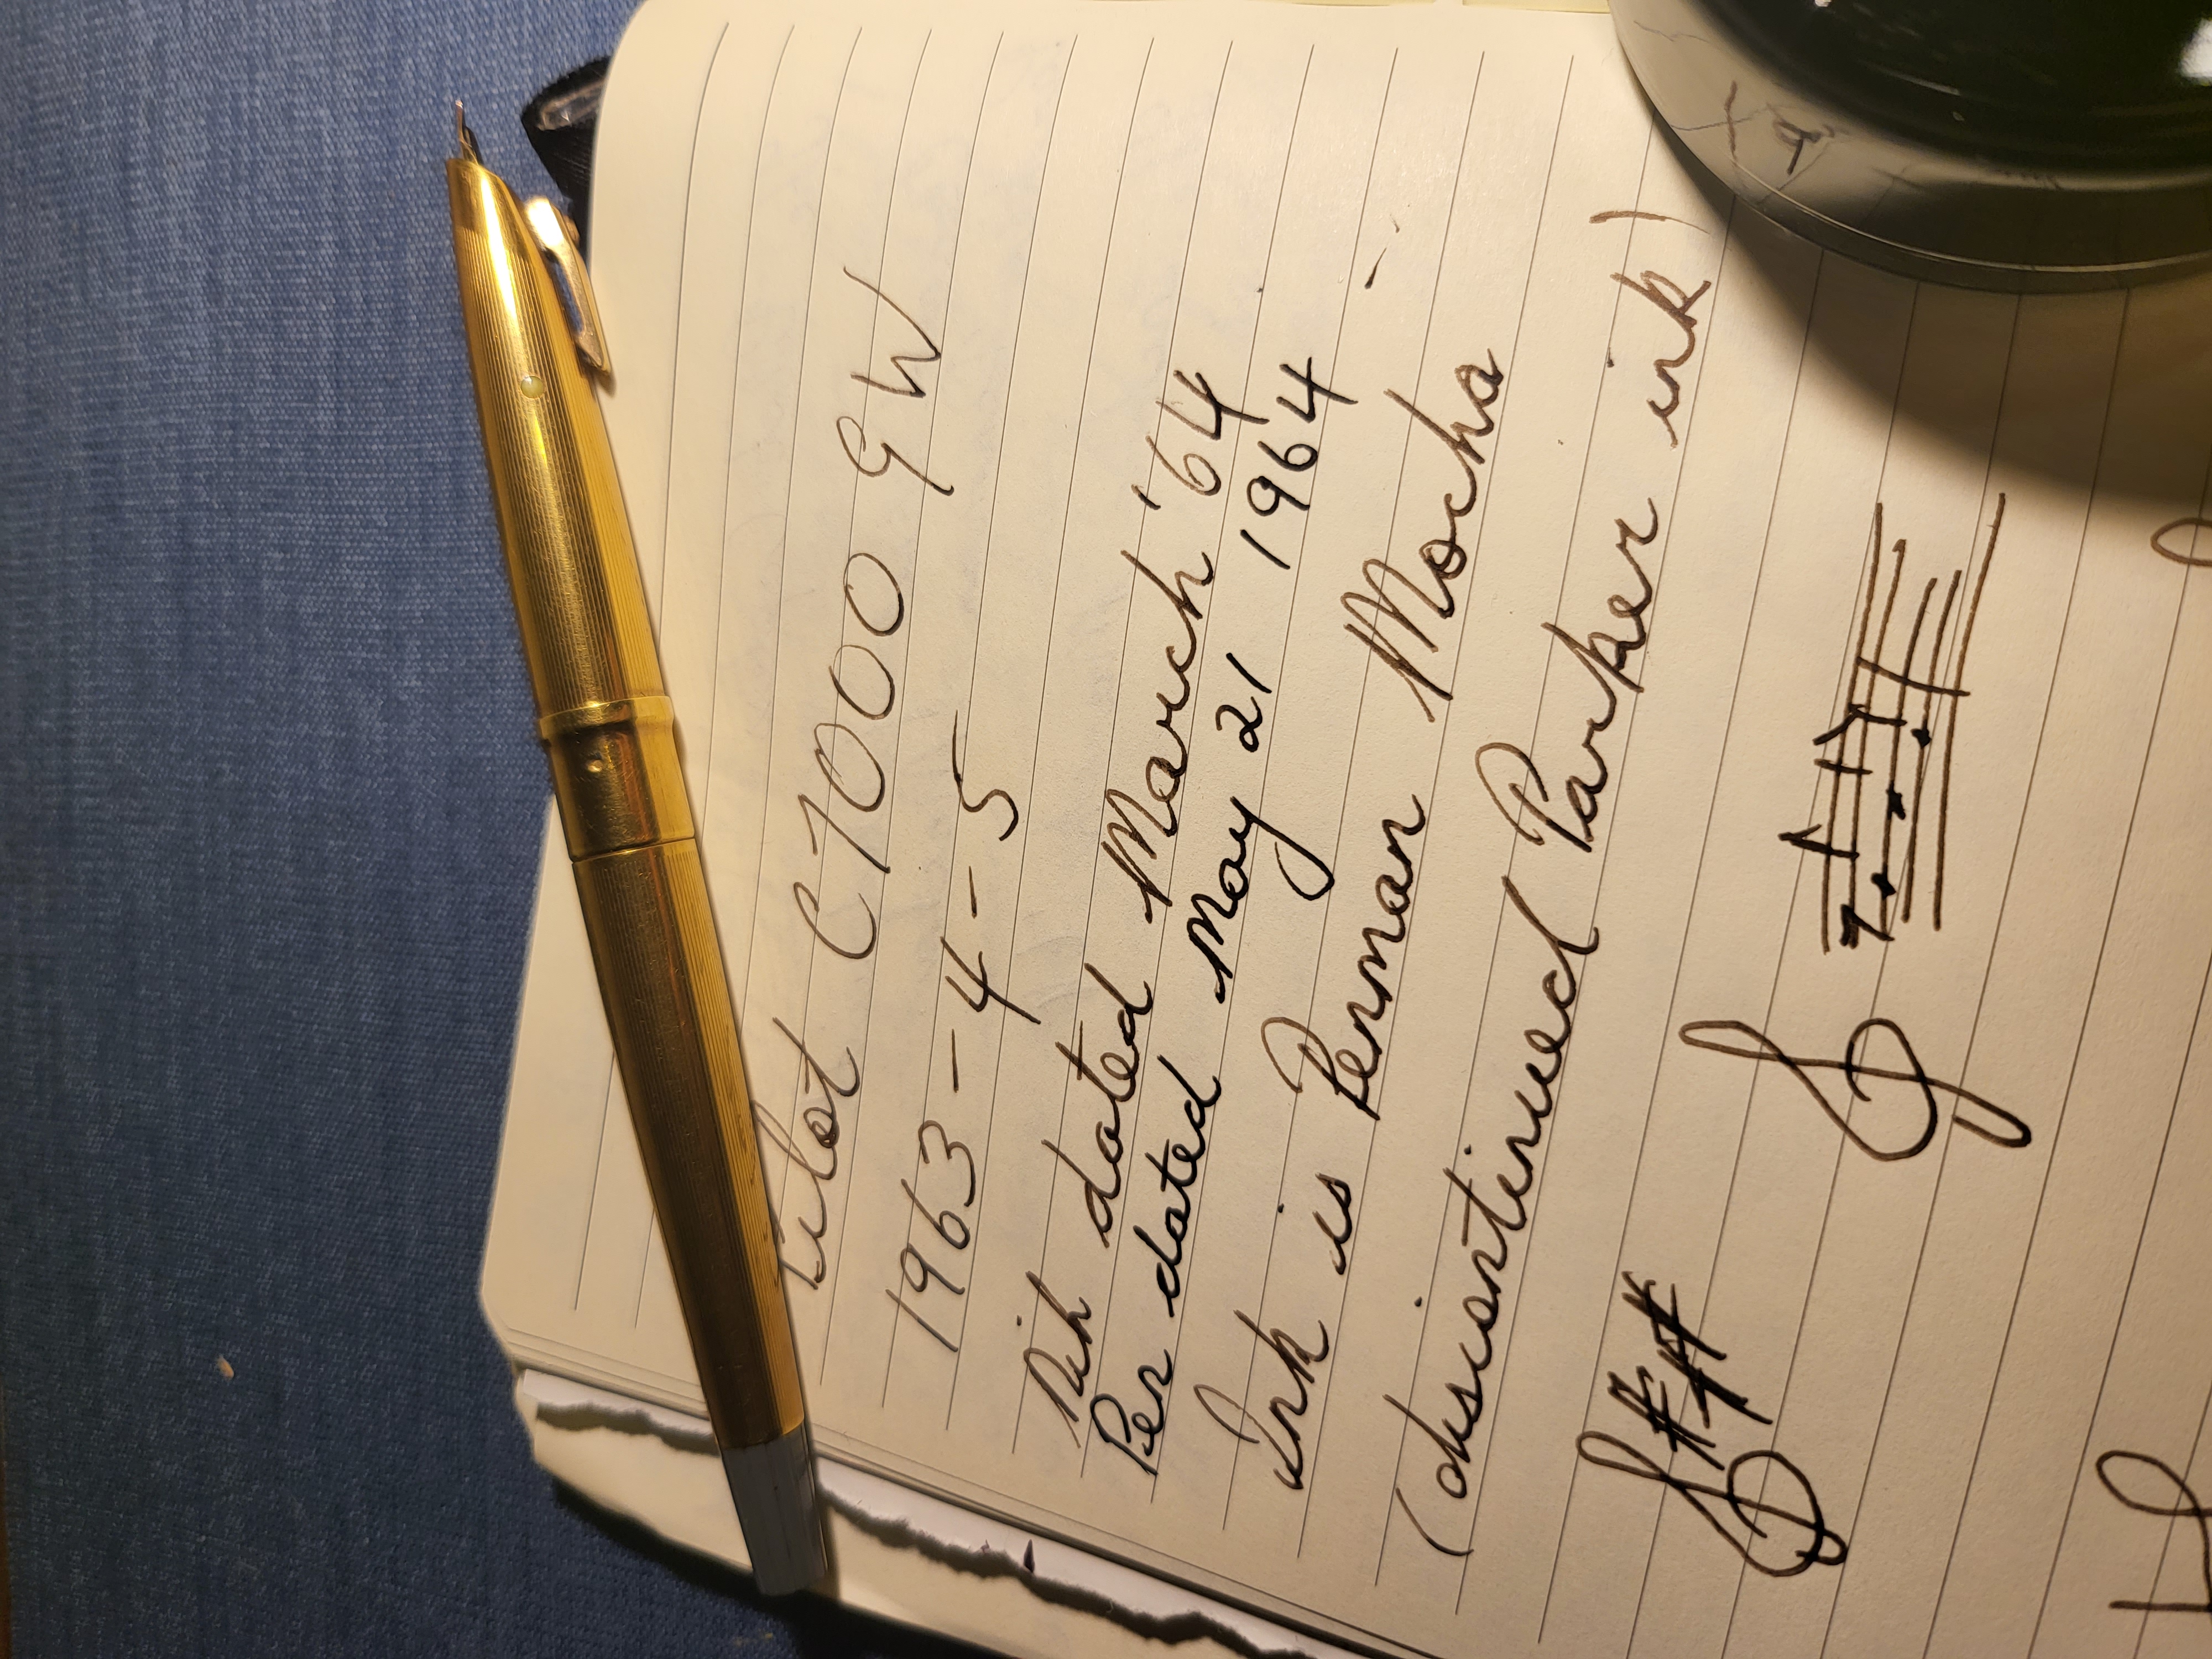 Pilot C700 GW
1963-4-5
Nib dated March '64
Pen dated May 21 1964 -
Ink is Penman Mocha
(discontinued Parker ink)